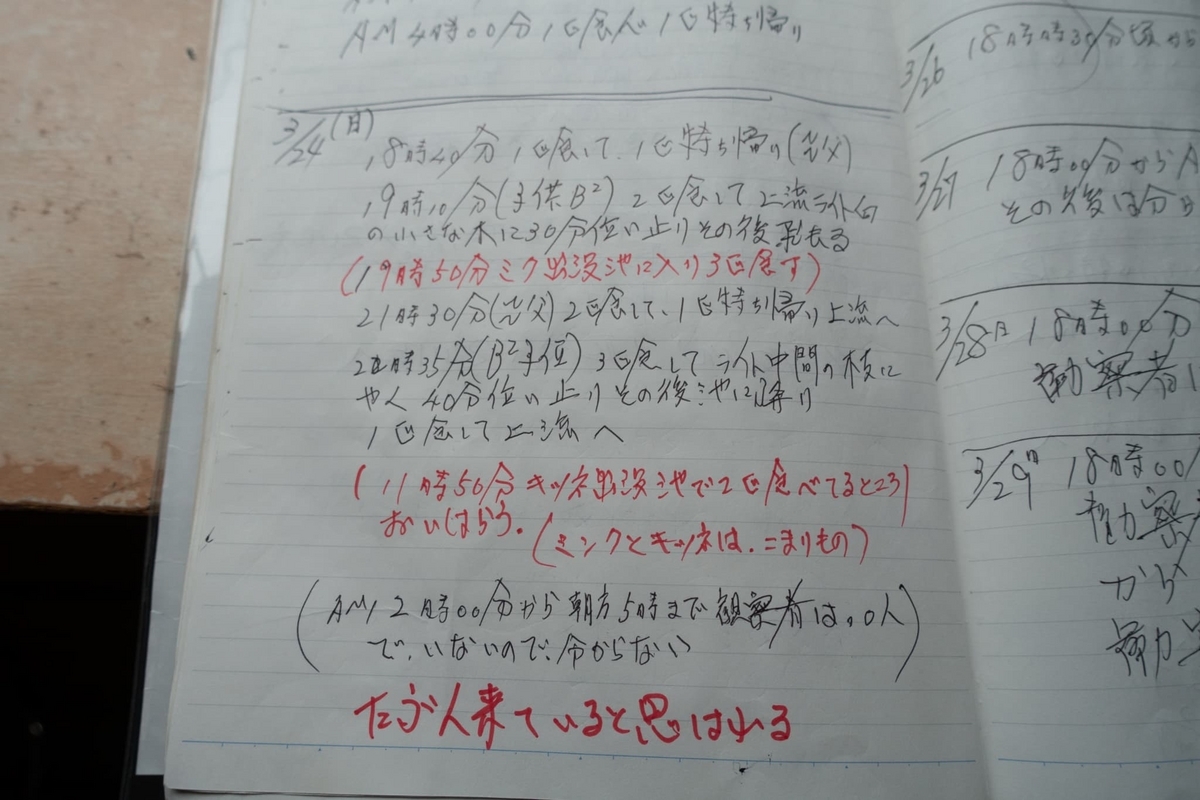 AM 4時00分 1匹食べ 1匹持ち帰り
3/24(日)
18時40分 1匹食して、1匹持ち帰り(父)
19時10分(子供B²) 2匹食して上流ライト
の小さな木に30分位い止りその後飛去る
(19時50分ミク出没池に入り3匹食す)
21時30分(父) 2匹食して、1匹持ち帰り上流へ
時35分(B²子位) 3匹食して ライト中間の枝に
やく40分位い止りその後池に降り
1匹食して上流へ
(11時50分キツネ出没池で2匹食べてるところ)
おいはらう。(ミンクとキツネは、こまりもの)
(AM12時00分から朝方5時まで観察者は、0人
で、いないので、分からない)
たぶん来ていると思はれる
3/26 18時30分頃から
3/27 18時00分から
その後は分
3/28日 18時00分
観察者
3/29日 18時00
観察
から